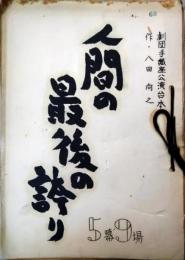 劇団手織座公演台本
作・八田尚之
人間の
最後の
誇り
5幕9場